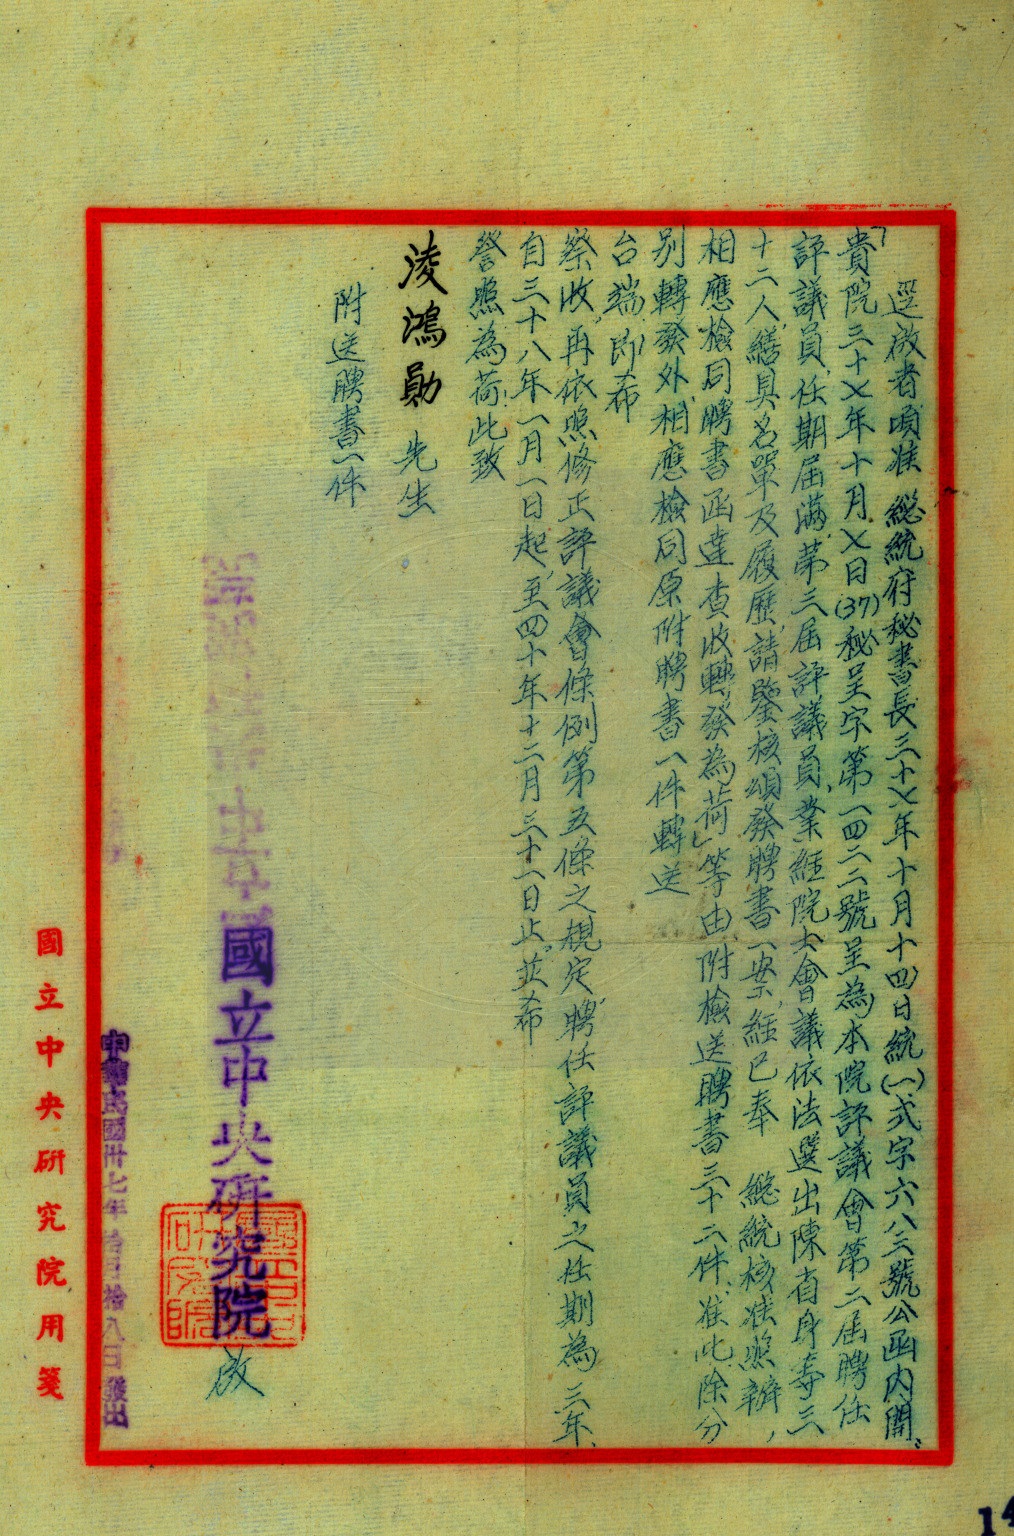 逕啟者頃准 總統府秘書長三十七年十月十四日統(一)式字六八三號公函內開：
「貴院三十七年十月七日(37)秘呈字第一四二二號呈為本院評議會第二屆聘任
評議員任期屆滿，第三屆評議員，業經院士會議依法選出陳省身等三
十二人，繕具名單及履歷，請鑒核頒發聘書一案，經已奉 總統核准照辦，
相應檢同聘書函達查收轉發為荷」等由附檢送聘書三十二件，准此除分
別轉發外，相應檢同原附聘書一件轉送
台端，即希
察收，再依照修正評議會條例第五條之規定，聘任評議員之任期為三年，
自三十八年一月一日起，至四十年十二月三十一日止，並希
詧照為荷，此致
淩鴻勛 先生
附送聘書一件
國立中央研究院 啟
中華民國卅七年拾月拾八日發出
國立中央研究院用箋